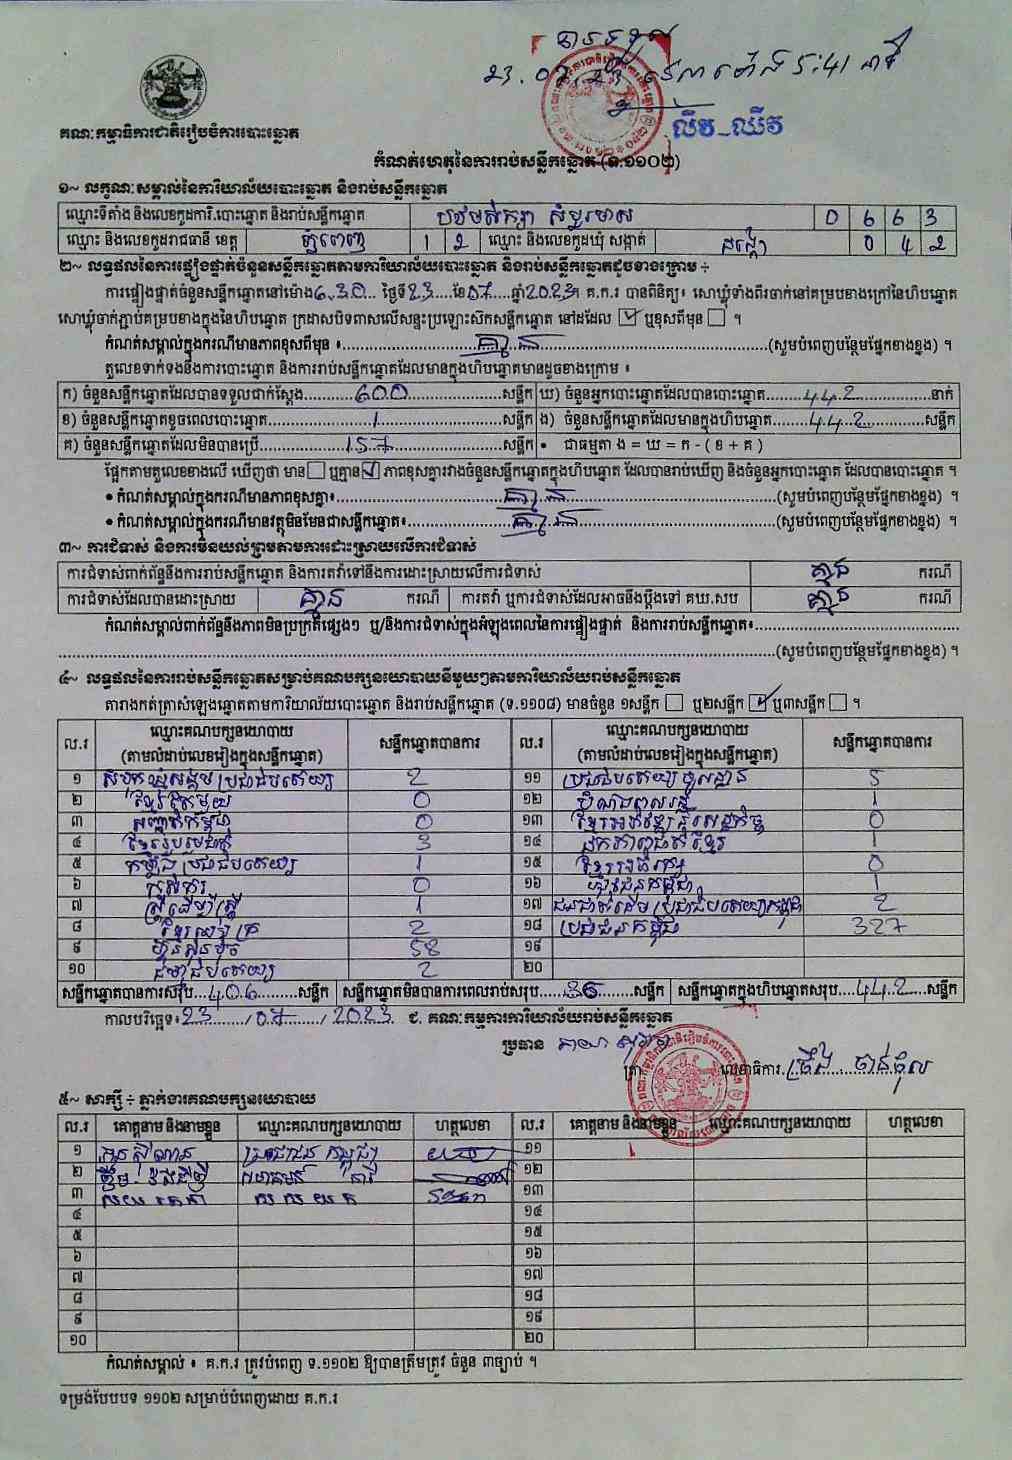 បានទទួល
23.07.23 វេលាម៉ោង 5:41 នាទី
គណៈកម្មាធិការជាតិរៀបចំការបោះឆ្នោត
លឹម_ឈីវ
កំណត់ហេតុនៃការរាប់សន្លឹកឆ្នោត (ទ.១១០២)
១~ លក្ខណៈសម្គាល់នៃការិយាល័យបោះឆ្នោត និងរាប់សន្លឹកឆ្នោត
ឈ្មោះទីតាំង និងលេខកូដការិ.បោះឆ្នោត និងរាប់សន្លឹកឆ្នោត បឋមសិក្សា សំបួរមាស 0 6 6 3
ឈ្មោះ និងលេខកូដរាជធានី ខេត្ត ភ្នំពេញ 1 2 ឈ្មោះ និងលេខកូដឃុំ សង្កាត់ ដង្កោ 0 4 2
២~ លទ្ធផលនៃការផ្ទៀងផ្ទាត់ចំនួនសន្លឹកឆ្នោតតាមការិយាល័យបោះឆ្នោត និងរាប់សន្លឹកឆ្នោតដូចខាងក្រោម ÷
ការផ្ទៀងផ្ទាត់ចំនួនសន្លឹកឆ្នោតនៅម៉ោង 6:30 ថ្ងៃទី 23 ខែ 07 ឆ្នាំ 2023 ។ គ.ក.រ បានពិនិត្យ៖ សោឃ្លុំទាំងពីរចាក់នៅគម្របខាងក្រៅនៃហិបឆ្នោត
សោឃ្លុំចាក់ភ្ជាប់គម្របខាងក្នុងនៃហិបឆ្នោត ក្រដាសបិទពាសលើសន្ទះប្រឡោះស៊កសន្លឹកឆ្នោត នៅដដែល ☑ ឬខុសពីមុន ☐ ។
កំណត់សម្គាល់ក្នុងករណីមានភាពខុសពីមុន ៖ គ្មាន (សូមបំពេញបន្ថែមផ្នែកខាងខ្នង) ។
តួលេខទាក់ទងនឹងការបោះឆ្នោត និងការរាប់សន្លឹកឆ្នោតដែលមានក្នុងហិបឆ្នោតមានដូចខាងក្រោម ៖
ក) ចំនួនសន្លឹកឆ្នោតដែលបានទទួលជាក់ស្តែង 600 សន្លឹក ឃ) ចំនួនអ្នកបោះឆ្នោតដែលបានបោះឆ្នោត 442 នាក់
ខ) ចំនួនសន្លឹកឆ្នោតខូចពេលបោះឆ្នោត 1 សន្លឹក ង) ចំនួនសន្លឹកឆ្នោតដែលមានក្នុងហិបឆ្នោត 442 សន្លឹក
គ) ចំនួនសន្លឹកឆ្នោតដែលមិនបានប្រើ 157 សន្លឹក • ជាធម្មតា ង = ឃ = ក - ( ខ + គ )
ផ្អែកតាមតួលេខខាងលើ ឃើញថា មាន ☐ ឬគ្មាន ☑ ភាពខុសគ្នារវាងចំនួនសន្លឹកឆ្នោតក្នុងហិបឆ្នោត ដែលបានរាប់ឃើញ និងចំនួនអ្នកបោះឆ្នោត ដែលបានបោះឆ្នោត ។
• កំណត់សម្គាល់ក្នុងករណីមានភាពខុសគ្នា៖ គ្មាន (សូមបំពេញបន្ថែមផ្នែកខាងខ្នង) ។
• កំណត់សម្គាល់ក្នុងករណីមានវត្ថុមិនមែនជាសន្លឹកឆ្នោត៖ គ្មាន (សូមបំពេញបន្ថែមផ្នែកខាងខ្នង) ។
៣~ ការជំទាស់ និងការមិនយល់ព្រមតាមការដោះស្រាយលើការជំទាស់
ការជំទាស់ពាក់ព័ន្ធនឹងការរាប់សន្លឹកឆ្នោត និងការតវ៉ាទៅនឹងការដោះស្រាយលើការជំទាស់ គ្មាន ករណី
ការជំទាស់ដែលបានដោះស្រាយ គ្មាន ករណី ការតវ៉ា ឬការជំទាស់ដែលអាចនឹងប្តឹងទៅ គឃ.សប គ្មាន ករណី
កំណត់សម្គាល់ពាក់ព័ន្ធនឹងភាពមិនប្រក្រតីផ្សេងៗ ឬ/និងការជំទាស់ក្នុងអំឡុងពេលនៃការផ្ទៀងផ្ទាត់ និងការរាប់សន្លឹកឆ្នោត៖
(សូមបំពេញបន្ថែមផ្នែកខាងខ្នង) ។
៤~ លទ្ធផលនៃការរាប់សន្លឹកឆ្នោតសម្រាប់គណបក្សនយោបាយនីមួយៗតាមការិយាល័យរាប់សន្លឹកឆ្នោត
តារាងកត់ត្រាសំឡេងឆ្នោតតាមការិយាល័យបោះឆ្នោត និងរាប់សន្លឹកឆ្នោត (ទ.១១០៨) មានចំនួន ១សន្លឹក ☐ ឬ២សន្លឹក ☑ ឬ៣សន្លឹក ☐ ។
ល.រ ឈ្មោះគណបក្សនយោបាយ (តាមលំដាប់លេខរៀងក្នុងសន្លឹកឆ្នោត) សន្លឹកឆ្នោតបានការ ល.រ ឈ្មោះគណបក្សនយោបាយ (តាមលំដាប់លេខរៀងក្នុងសន្លឹកឆ្នោត) សន្លឹកឆ្នោតបានការ
១ សំបុកឃ្មុំសង្គមប្រជាធិបតេយ្យ 2 ១១ ប្រជាធិបតេយ្យមូលដ្ឋាន 5
២ ខ្មែរតែមួយ 0 ១២ 1
៣ អំណាចកម្ពុជា 0 ១៣ ខ្មែរអភិវឌ្ឍន៍សេដ្ឋកិច្ច 0
៤ ខ្មែររួបរួមជាតិ 3 ១៤ ឯកភាពជាតិខ្មែរ 1
៥ កម្លាំងប្រជាធិបតេយ្យ 1 ១៥ ខ្មែរអភិរក្ស 0
៦ កសិករ 0 ១៦ 1
៧ ស្ត្រីដើម្បីស្ត្រី 1 ១៧ ជនជាតិដើមប្រជាធិបតេយ្យកម្ពុជា 2
៨ ខ្មែរឈប់ក្រ 2 ១៨ ប្រជាជនកម្ពុជា 327
៩ ហ្វ៊ុនស៊ិនប៉ិច 58 ១៩
១០ ធម្មាធិបតេយ្យ 2 ២០
សន្លឹកឆ្នោតបានការសរុប 406 សន្លឹក សន្លឹកឆ្នោតមិនបានការពេលរាប់សរុប 36 សន្លឹក សន្លឹកឆ្នោតក្នុងហិបឆ្នោតសរុប 442 សន្លឹក
កាលបរិច្ឆេទ៖ 23 / 07 / 2023 ជ. គណៈកម្មការការិយាល័យរាប់សន្លឹកឆ្នោត
ប្រធាន
ត្រា លេខាធិការ
៥~ សាក្សី ÷ ភ្នាក់ងារគណបក្សនយោបាយ
ល.រ គោត្តនាម និងនាមខ្លួន ឈ្មោះគណបក្សនយោបាយ ហត្ថលេខា ល.រ គោត្តនាម និងនាមខ្លួន ឈ្មោះគណបក្សនយោបាយ ហត្ថលេខា
១ ប្រជាជន កម្ពុជា ១១
២ ១២
៣ ១៣
៤ ១៤
៥ ១៥
៦ ១៦
៧ ១៧
៨ ១៨
៩ ១៩
១០ ២០
កំណត់សម្គាល់ ៖ គ.ក.រ ត្រូវបំពេញ ទ.១១០២ ឱ្យបានត្រឹមត្រូវ ចំនួន ៣ច្បាប់ ។
ទម្រង់បែបបទ ១១០២ សម្រាប់បំពេញដោយ គ.ក.រ